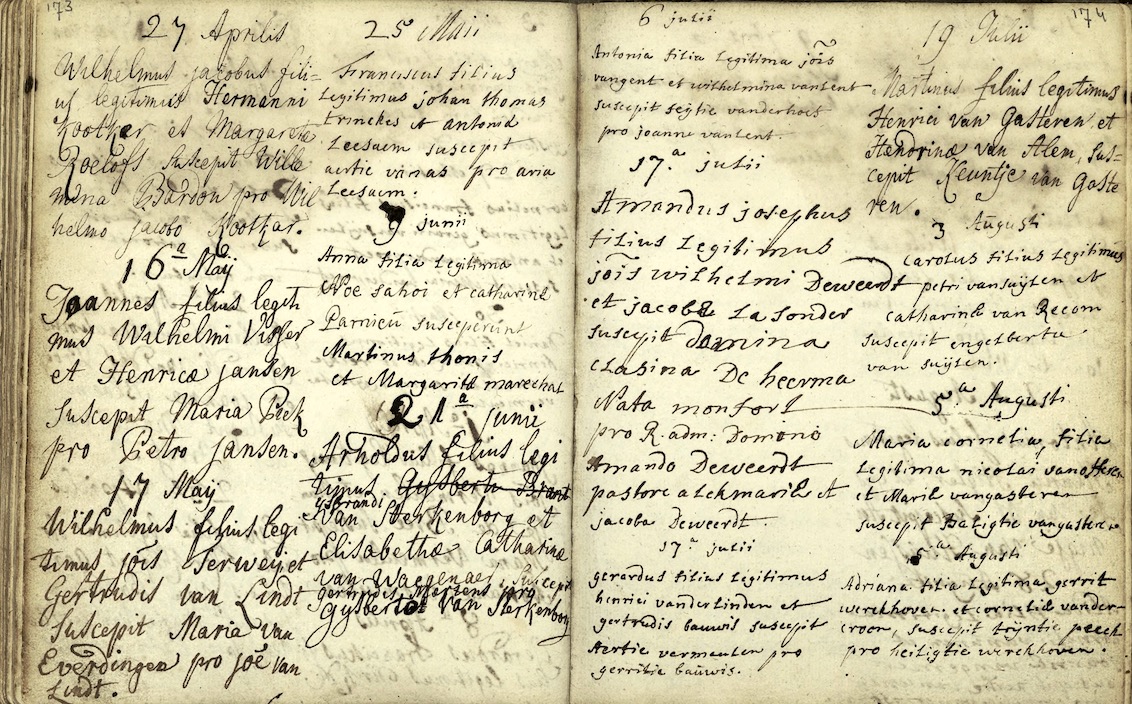 173
27 Aprilis
Wilhelmus jacobus fili=
us legitimus Hermanni
Kootkar et Margareta
Roelofs suscepit Wille
mina Bardon pro Wil
helmo jacobo Kootkar.
16a Maij
Joannes filius legiti
mus Wilhelmi Visser
et Henricæ jansen
suscepit Maria Piek
pro Pietro jansen.
17 Maij
Wilhelmus filius legi
timus jois Terweij et
Gertrudis van Lindt
suscepit Maria van
Everdingen pro joe van
Lindt.
25 Maii
Franciscus filius
Legitimus johan thomas
trinekes et antonia
Leesaem suscepit
aertie pro aria
Leesaem.
9 junii
Anna filia Legitima
Noe sahoi et catharinæ
Parnicu susceperunt
Martinus thonis
et Margarita marechal
21a junii
Arnoldus filius legi
timus Gysberti Brant
ysbrandi
van Sterkenborg et
Elisabethæ Catharinæ
van Waegenaer, suscepit
gertrudis Martens pro
Gysberto van Sterkenborg
6 julii
Antonia filia Legitima jois
vangent et wilhelmina vantent
suscepit seijtie vanderhoef
pro joanne vantent.
17.a julii
Amandus josephus
filius Legitimus
jois wilhelmi Deweerdt
et jacobæ La sonder
suscepit domina
clasina De heerma
Nata monfort
pro R. adm: Domino
Amando Deweerdt
pastore alckmariæ et
jacoba Deweerdt.
17a julii
gerardus filius Legitimus
henrici vanderlinden et
gertrudis bauwis suscepit
Aertie vermeulen pro
gerritie bauwis.
174
19 Julii
Martinus filius legitimus
Henrici van Gasteren et
Hendrinæ van Alem, sus=
cepit Keuntje van Gaste
ren.
3 Augusti
carolus filius Legitimus
petri vansuijlen et
catharinæ van Recom
suscepit engelberta
van suijlen.
5a Augusti
Maria cornelia, filia
Legitima nicolai vanotteren
et Mariæ vangasteren
suscepit Baligtie vangasteren
5a Augusti
Adriana filia Legitima gerrit
werckhoven. et corneliæ vander-
croon, suscepit trijntie peeck
pro heiligtie werckhoven.